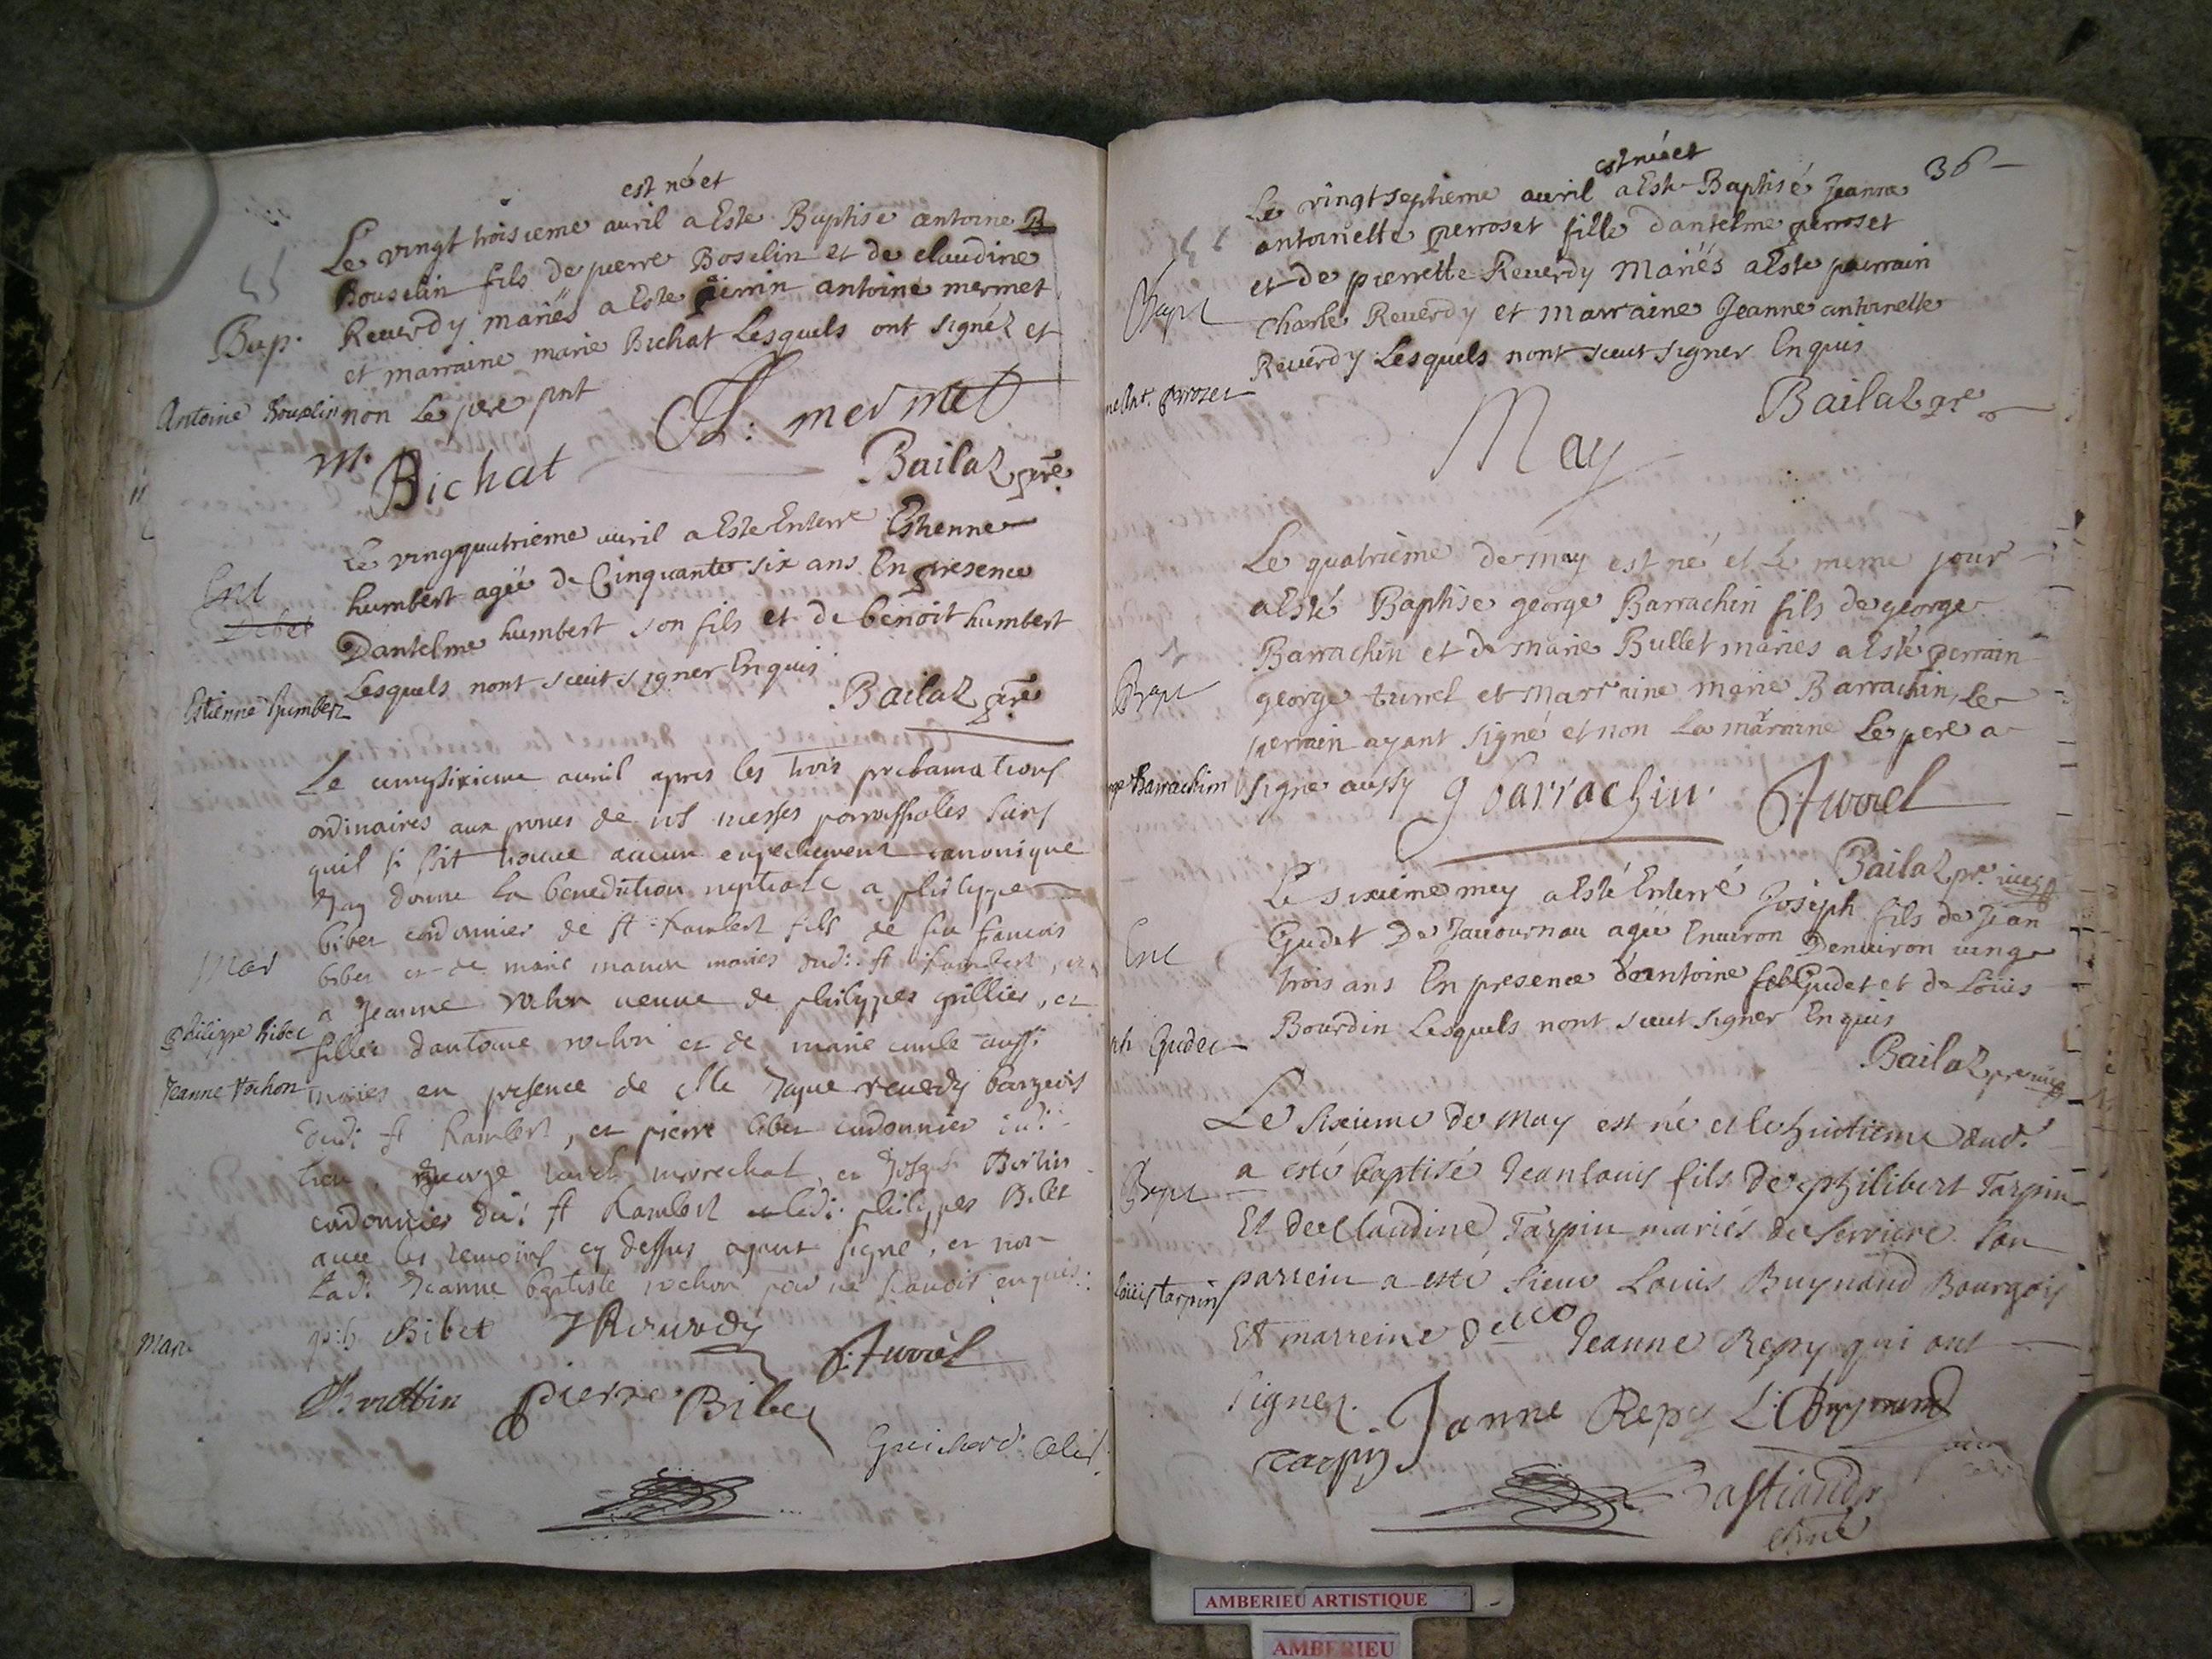 est né et
Le vingt troisieme avril a Este Baptise antoine B
Bouselin fils de pierre Boselin et de claudine
Reverdy mariés a Este perrin antoine mermet
et marraine marie Bichat Lesquels ont signéz et
non Le pere pnt
Bap.
Antoine Bouselin
A: mermet
M. Bichat
Bailaz pre
Le vingquatrieme avril a Este Enterre Estienne
humbert agée de Cinquante six ans En presence
Dantelme humbert son fils et de benoit humbert
Lesquels nont sceut signer Enquis
Ent
Estienne humbert
Bailaz pre
Le vingsixieme avril apres les trois proclamations
ordinaires aux prones de nos messes parroissiales sans
quil si soit trouve aucun empechement canonique
Jay donne la benediction nuptiale a philippe
bibet cordonnier de st Rambert fils de feu francois
bibet et de marie mariés dudi: st Rambert, et
a Jeanne rochon veuve de philippes grillier, et
fille dantoine rochon et de marie aussi
mariés en presence de Me Jaque reverdy bourgeois
dudi st Rambert, et pierre bibet cordonnier dudi
lieu, george turrel marechal, et Joseph Bertin
cordonnier du: st Rambert ledi: philippes Bibet
avec les temoins cy dessus ayant signé, et non
Ladi: Jeanne baptiste rochon pour ne scavoir enquis:
Mar
Philippe Bibet
Jeanne Rochon
Mar.
ph Bibet JReverdy
G. Turrel
pierre Bibet
Guichard
36
est née et
Le vingt septieme avril a Este Baptisé Jeanne
antoinette perroset fille dantelme perroset
et de pierrette Reverdy Mariés a Este parrain
Charle Reverdy et Marraine Jeanne antoinette
Reverdy Lesquels nont sceut signer Enquis
Bapt
Bailaz pre
May
Le quatrième de may est né et Le meme jour
a Esté Baptise george Barrachin fils de george
Barrachin et de marie Bullet mariés a Esté perrain
george turrel et Marraine marie Barrachin, Le
perrain ayant signé et non La marraine Le pere a
signe aussy g barrachin. G. Turrel
Bapt
Barrachin
Bailaz pre vice
Le sixième mey a Esté Enterré Joseph fils de Jean
Gudet De Javournau agée Environ Denviron vingt
trois ans En presence d'antoine Gudet et de Louis
Bourdin Lesquels nont sceut signer Enquis
Ent
Gudet
Bailaz pre vice
Le sixieme de may est né et le huitieme dud.
a esté baptisé Jean louis fils de philibert Tarpin
Et de Claudine Tarpin mariés de Serriere. Son
parrein a esté sieur Louis Buynaud Bourgois
Et marreine delle Jeanne Repy qui ont
signez.
Bapt
Louis tarpin
Janne Repy L: Buynand
Tarpin
Bastiand
AMBERIEU ARTISTIQUE
AMBERIEU